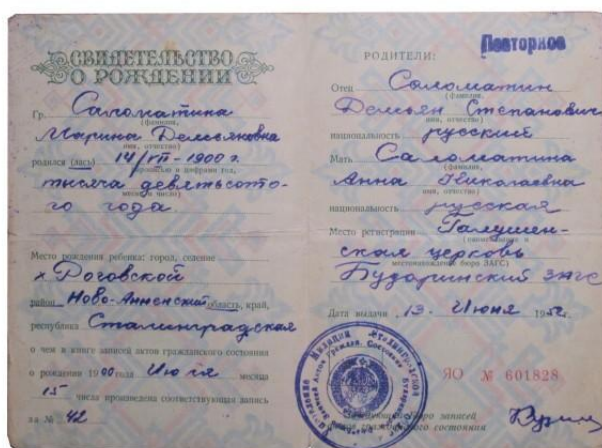 СВИДЕТЕЛЬСТВО
О РОЖДЕНИИ
Гр. Саломатина
(фамилия,
Марина Демьяновна
имя, отчество)
родился (лась) 14/VII - 1900 г.
тысяча девятьсото-
го года
Место рождения ребенка: город, селение
х Роговской
район Ново-Анненский область, край,
республика Сталинградская
о чем в книге записей актов гражданского состояния
о рождении 1900 года Июля месяца
15 числа произведена соответствующая запись
за № 42
Повторное
РОДИТЕЛИ:
Отец Саломатин
(фамилия,
Демьян Степанович
имя, отчество)
национальность русский
Мать Саломатина
(фамилия,
Анна Николаевна
имя, отчество)
национальность русская
Место регистрации
ская церковь
местонахождение бюро ЗАГС)
Бударинский ЗАГС
Дата выдачи 13. Июня 195
ЯО № 601828
бюро записей
актов гражданского состояния